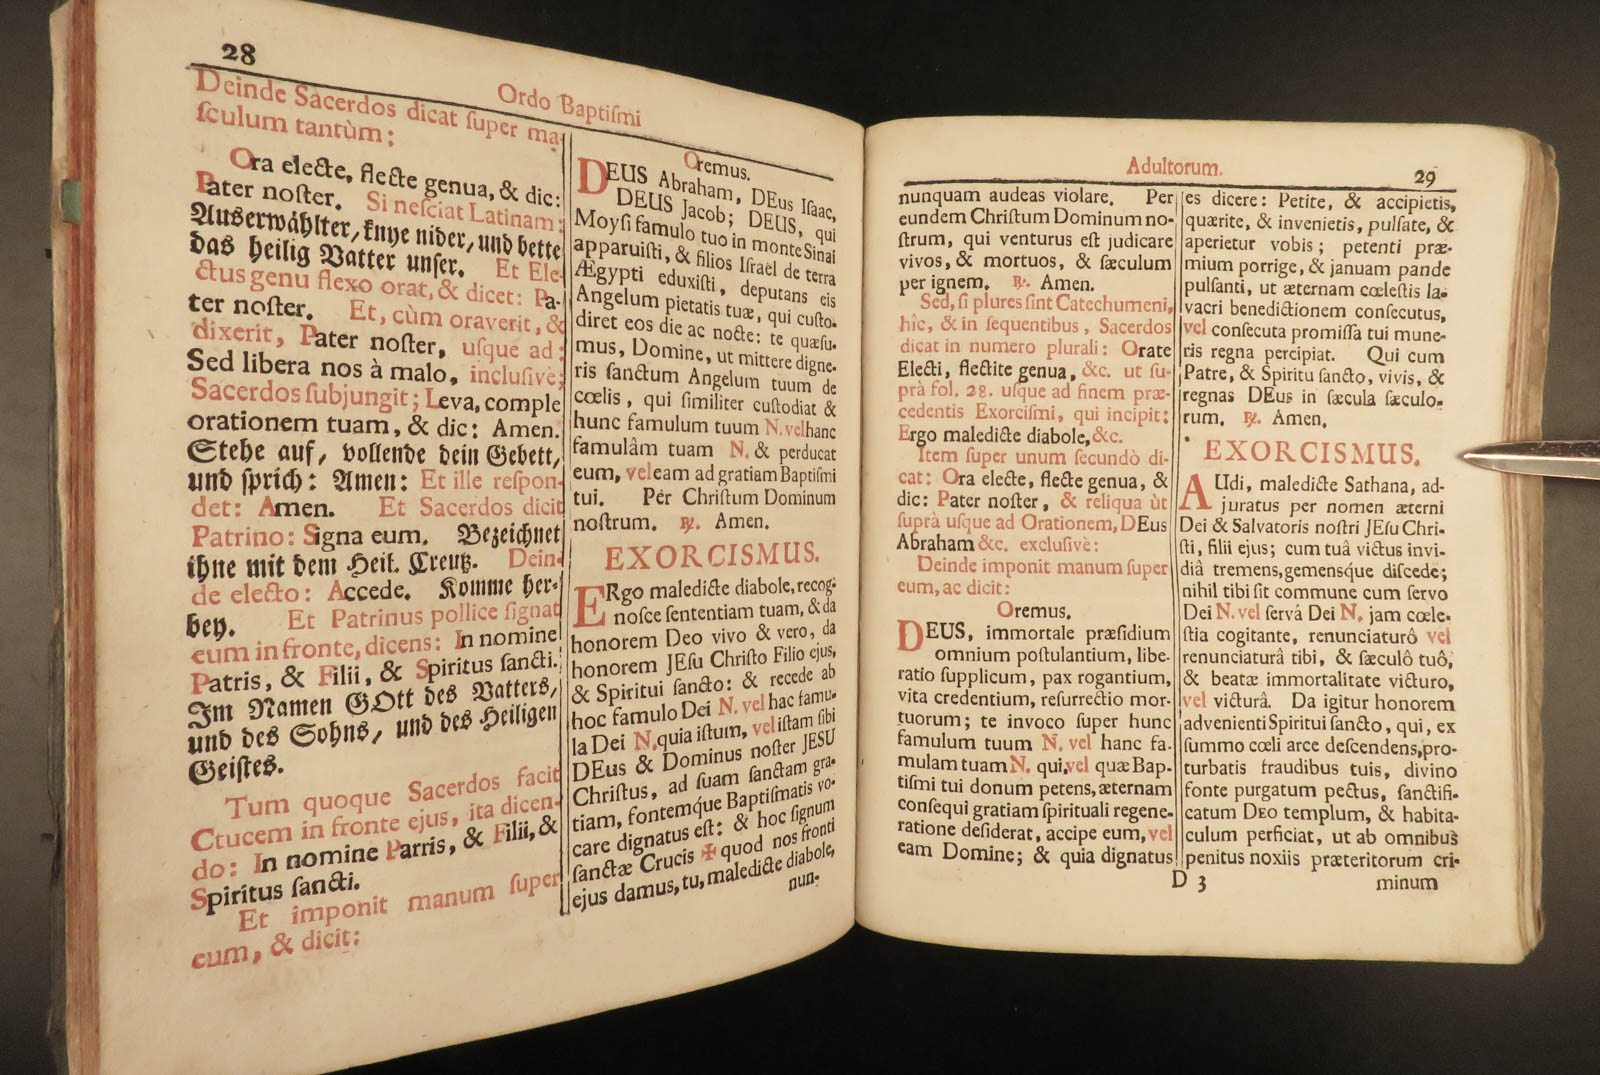 28
Ordo Baptiſmi
Deinde Sacerdos dicat ſuper ma-
ſculum tantùm:
Ora electe, flecte genua, & dic:
Pater noſter. Si neſciat Latinam:
Auſerwåhlter, knye nider, und bette
das heilig Vatter unſer. Et Ele-
ctus genu flexo orat, & dicet: Pa-
ter noſter. Et, cùm oraverit, &
dixerit, Pater noſter, uſque ad:
Sed libera nos à malo, incluſivè;
Sacerdos ſubjungit; Leva, comple
orationem tuam, & dic: Amen.
Stehe auf, vollende dein Gebett,
und ſprich: Amen: Et ille reſpon-
det: Amen. Et Sacerdos dicit
Patrino: Signa eum. Bezeichnet
ihne mit dem Heil. Creutz. Dein-
de electo: Accede. Komme her-
bey. Et Patrinus pollice ſignat
eum in fronte, dicens: In nomine
Patris, & Filii, & Spiritus ſancti.
Im Namen GOtt des Vatters,
und des Sohns, und des Heiligen
Geiſtes.
Tum quoque Sacerdos facit
Ctucem in fronte ejus, ita dicen-
do: In nomine Parris, & Filii, &
Spiritus ſancti.
Et imponit manum ſuper
eum, & dicit:
Oremus.
DEUS Abraham, DEus Iſaac,
DEUS Jacob; DEUS, qui
Moyſi famulo tuo in monte Sinai
apparuiſti, & filios Iſraël de terra
Ægypti eduxiſti, deputans eis
Angelum pietatis tuæ, qui cuſto-
diret eos die ac nocte: te quæſu-
mus, Domine, ut mittere digne-
ris ſanctum Angelum tuum de
cœlis, qui ſimiliter cuſtodiat &
hunc famulum tuum N. vel hanc
famulâm tuam N. & perducat
eum, vel eam ad gratiam Baptiſmi
tui. Per Chriſtum Dominum
noſtrum. ℟. Amen.
EXORCISMUS.
ERgo maledicte diabole, recog-
noſce ſententiam tuam, & da
honorem Deo vivo & vero, da
honorem JEſu Chriſto Filio ejus,
& Spiritui ſancto: & recede ab
hoc famulo Dei N. vel hac famu-
la Dei N. quia iſtum, vel iſtam ſibi
DEus & Dominus noſter JESU
Chriſtus, ad ſuam ſanctam gra-
tiam, fontemque Baptiſmatis vo-
care dignatus eſt: & hoc ſignum
ſanctæ Crucis ✠ quod nos fronti
ejus damus, tu, maledicte diabole,
nun-
Adultorum.
29
nunquam audeas violare. Per
eundem Chriſtum Dominum no-
ſtrum, qui venturus eſt judicare
vivos, & mortuos, & ſæculum
per ignem. ℟. Amen.
Sed, ſi plures ſint Catechumeni,
hîc, & in ſequentibus, Sacerdos
dicat in numero plurali: Orate
Electi, flectite genua, &c. ut ſu-
prà fol. 28. uſque ad finem præ-
cedentis Exorciſmi, qui incipit:
Ergo maledicte diabole, &c.
Item ſuper unum ſecundò di-
cat: Ora electe, flecte genua, &
dic: Pater noſter, & reliqua ùt
ſuprà uſque ad Orationem, DEus
Abraham &c. excluſivè:
Deinde imponit manum ſuper
eum, ac dicit:
Oremus.
DEUS, immortale præſidium
omnium poſtulantium, libe-
ratio ſupplicum, pax rogantium,
vita credentium, reſurrectio mor-
tuorum; te invoco ſuper hunc
famulum tuum N. vel hanc fa-
mulam tuam N. qui, vel quæ Bap-
tiſmi tui donum petens, æternam
conſequi gratiam ſpirituali regene-
ratione deſiderat, accipe eum, vel
eam Domine; & quia dignatus
D 3
es dicere: Petite, & accipietis,
quærite, & invenietis, pulſate, &
aperietur vobis; petenti præ-
mium porrige, & januam pande
pulſanti, ut æternam cœleſtis la-
vacri benedictionem conſecutus,
vel conſecuta promiſſa tui mune-
ris regna percipiat. Qui cum
Patre, & Spiritu ſancto, vivis, &
regnas DEus in ſæcula ſæculo-
rum. ℟. Amen.
EXORCISMUS.
AUdi, maledicte Sathana, ad-
juratus per nomen æterni
Dei & Salvatoris noſtri JEſu Chri-
ſti, filii ejus; cum tuâ victus invi-
diâ tremens, gemensque diſcede;
nihil tibi ſit commune cum ſervo
Dei N. vel ſervâ Dei N. jam cœle-
ſtia cogitante, renunciaturô vel
renunciaturâ tibi, & ſæculô tuô,
& beatæ immortalitate victuro,
vel victurâ. Da igitur honorem
advenienti Spiritui ſancto, qui, ex
ſummo cœli arce deſcendens, pro-
turbatis fraudibus tuis, divino
fonte purgatum pectus, ſanctifi-
catum DEO templum, & habita-
culum perficiat, ut ab omnibus
penitus noxiis præteritorum cri-
minum